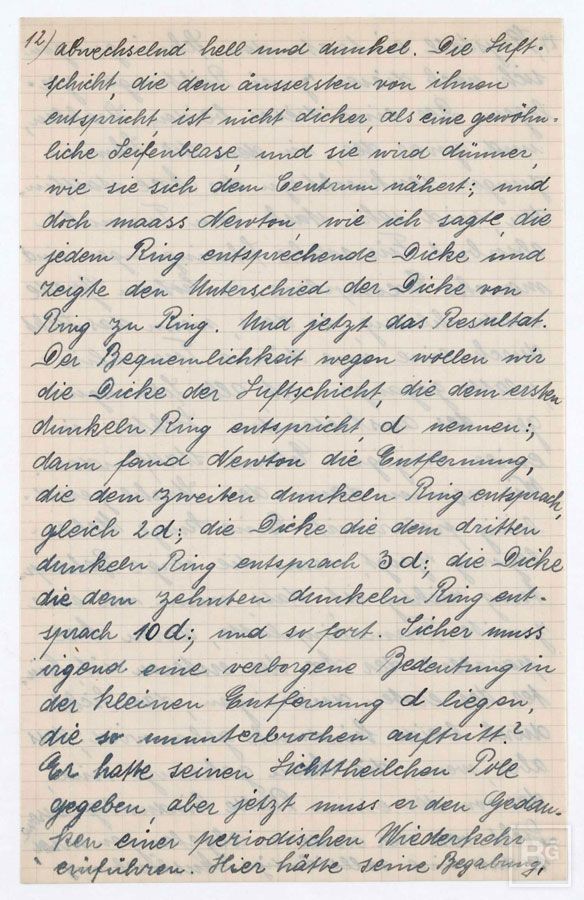 12) abwechselnd hell und dunkel. Die Luft-
schicht, die dem äussersten von ihnen
entspricht, ist nicht dicker, als eine gewöhn-
liche Seifenblase, und sie wird dünner,
wie sie sich dem Centrum nähert:, und
doch maass Newton, wie ich sagte, die
jedem Ring entsprechende Dicke und
zeigte den Unterschied der Dicke von
Ring zu Ring. Und jetzt das Resultat.
Der Bequemlichkeit wegen wollen wir
die Dicke der Luftschicht, die dem ersten
dunkeln Ring entspricht, d nennen:,
dann fand Newton die Entfernung,
die dem zweiten dunkeln Ring entsprach,
gleich 2d; die Dicke die dem dritten
dunkeln Ring entsprach 3d:, die Dicke
die dem zehnten dunkeln Ring ent-
sprach 10d:, und so fort. Sicher muss
irgend eine verborgene Bedeutung in
der kleinen Entfernung d liegen,
die so ununterbrochen auftritt?
Er hatte seinen Lichttheilchen Pole
gegeben, aber jetzt muss er den Gedan-
ken einer periodischen Wiederkehr
einführen. Hier hätte seine Begabung,